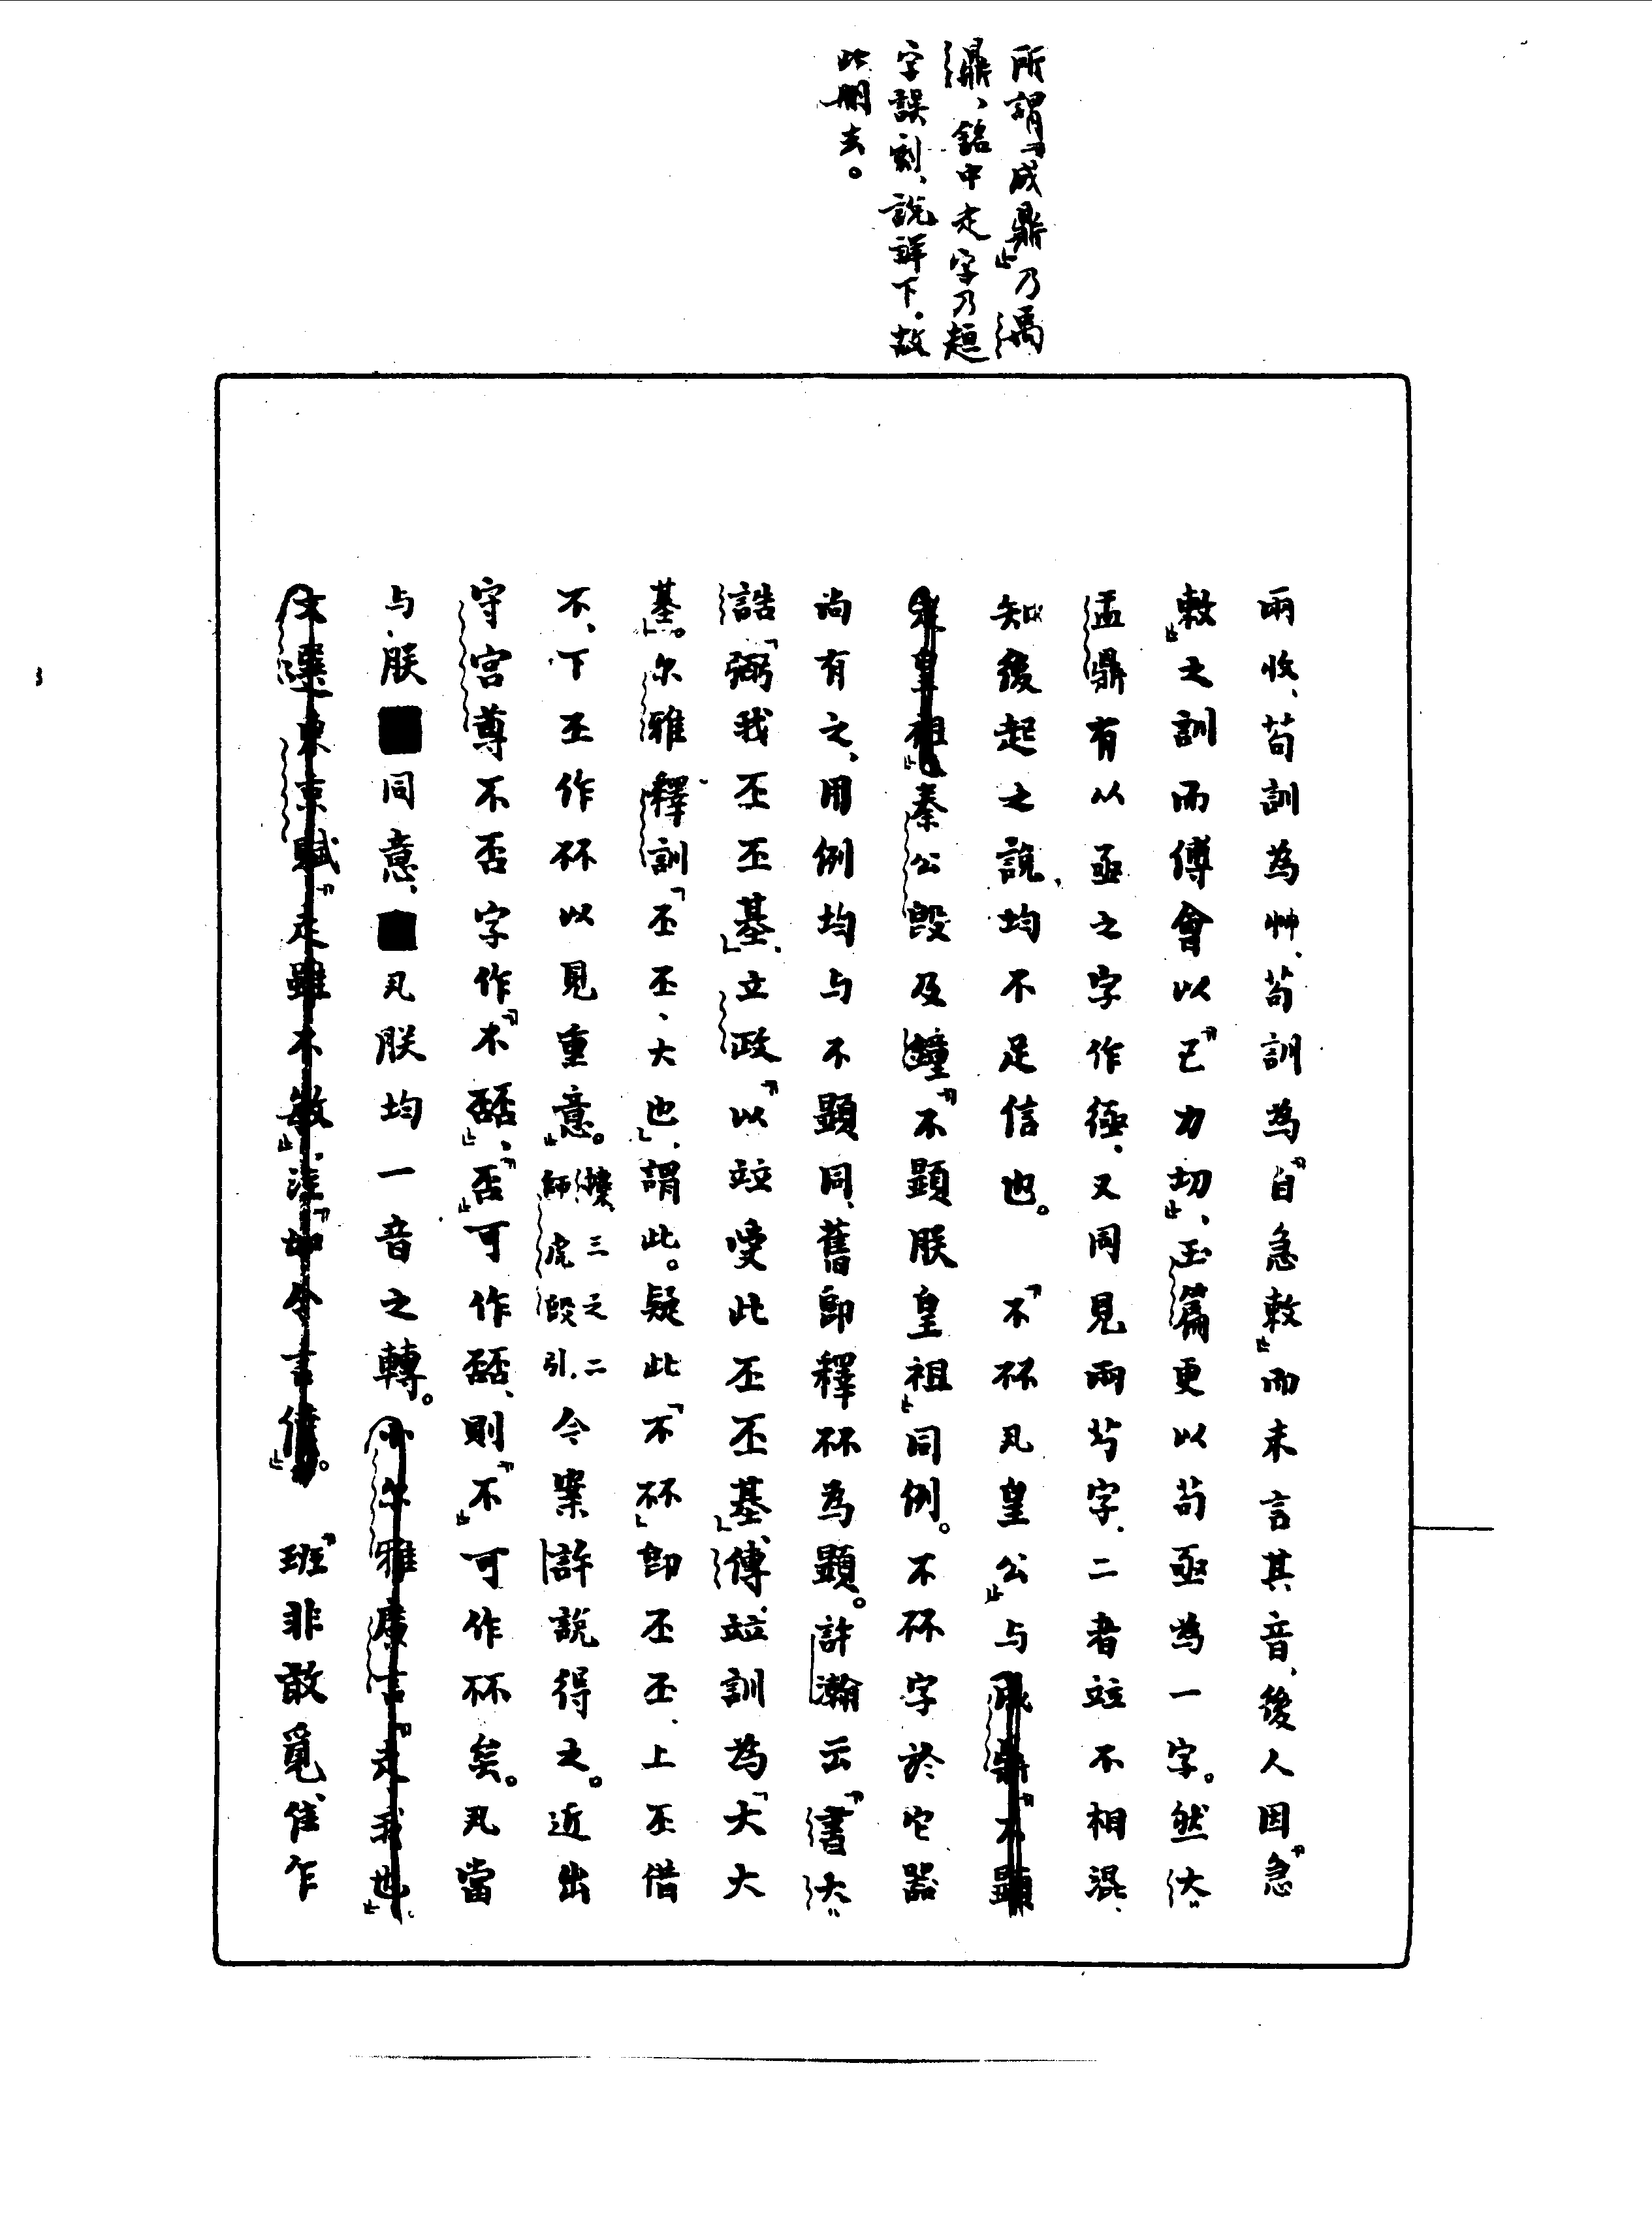 所謂『成鼎』乃禹
鼎、銘中走字乃趄
字誤刻、說詳下.故
此刪去。
兩收、苟訓為艸、茍訓為『自急敕』而未言其音、後人因『急
敕』之訓而傅會以『己力切』、玉篇更以茍亟為一字。然大
盂鼎有从亟之字作極.又同見兩芍字.二者竝不相混.
知後起之說、均不足信也。　『不㔻丮皇公』与成鼎『不顯
走皇祖』秦公𣪘及鐘『不顯朕皇祖』同例。不㔻字於它器
尚有之、用例均与不顯同、舊卽釋㔻為顯。許瀚云『書大
誥「弼我丕丕基」.立政『以竝受此丕丕基」傳、竝訓為「大大
基」。尔雅釋訓「丕丕、大也」、謂此。疑此「不㔻」卽丕丕.上丕借
不、下丕作㔻以見重意』。攗三之二
師虎𣪘引.今案許說得之。近出
守宮尊不否字作『不䛒』、『否』可作䛒、則『不』可作㔻矣。丮當
与朕同意、丮朕均一音之轉。小尔雅廣言『走我也』
文選東京賦『走雖不敏』、注『如今言僕』。　『班非敢覓、隹乍